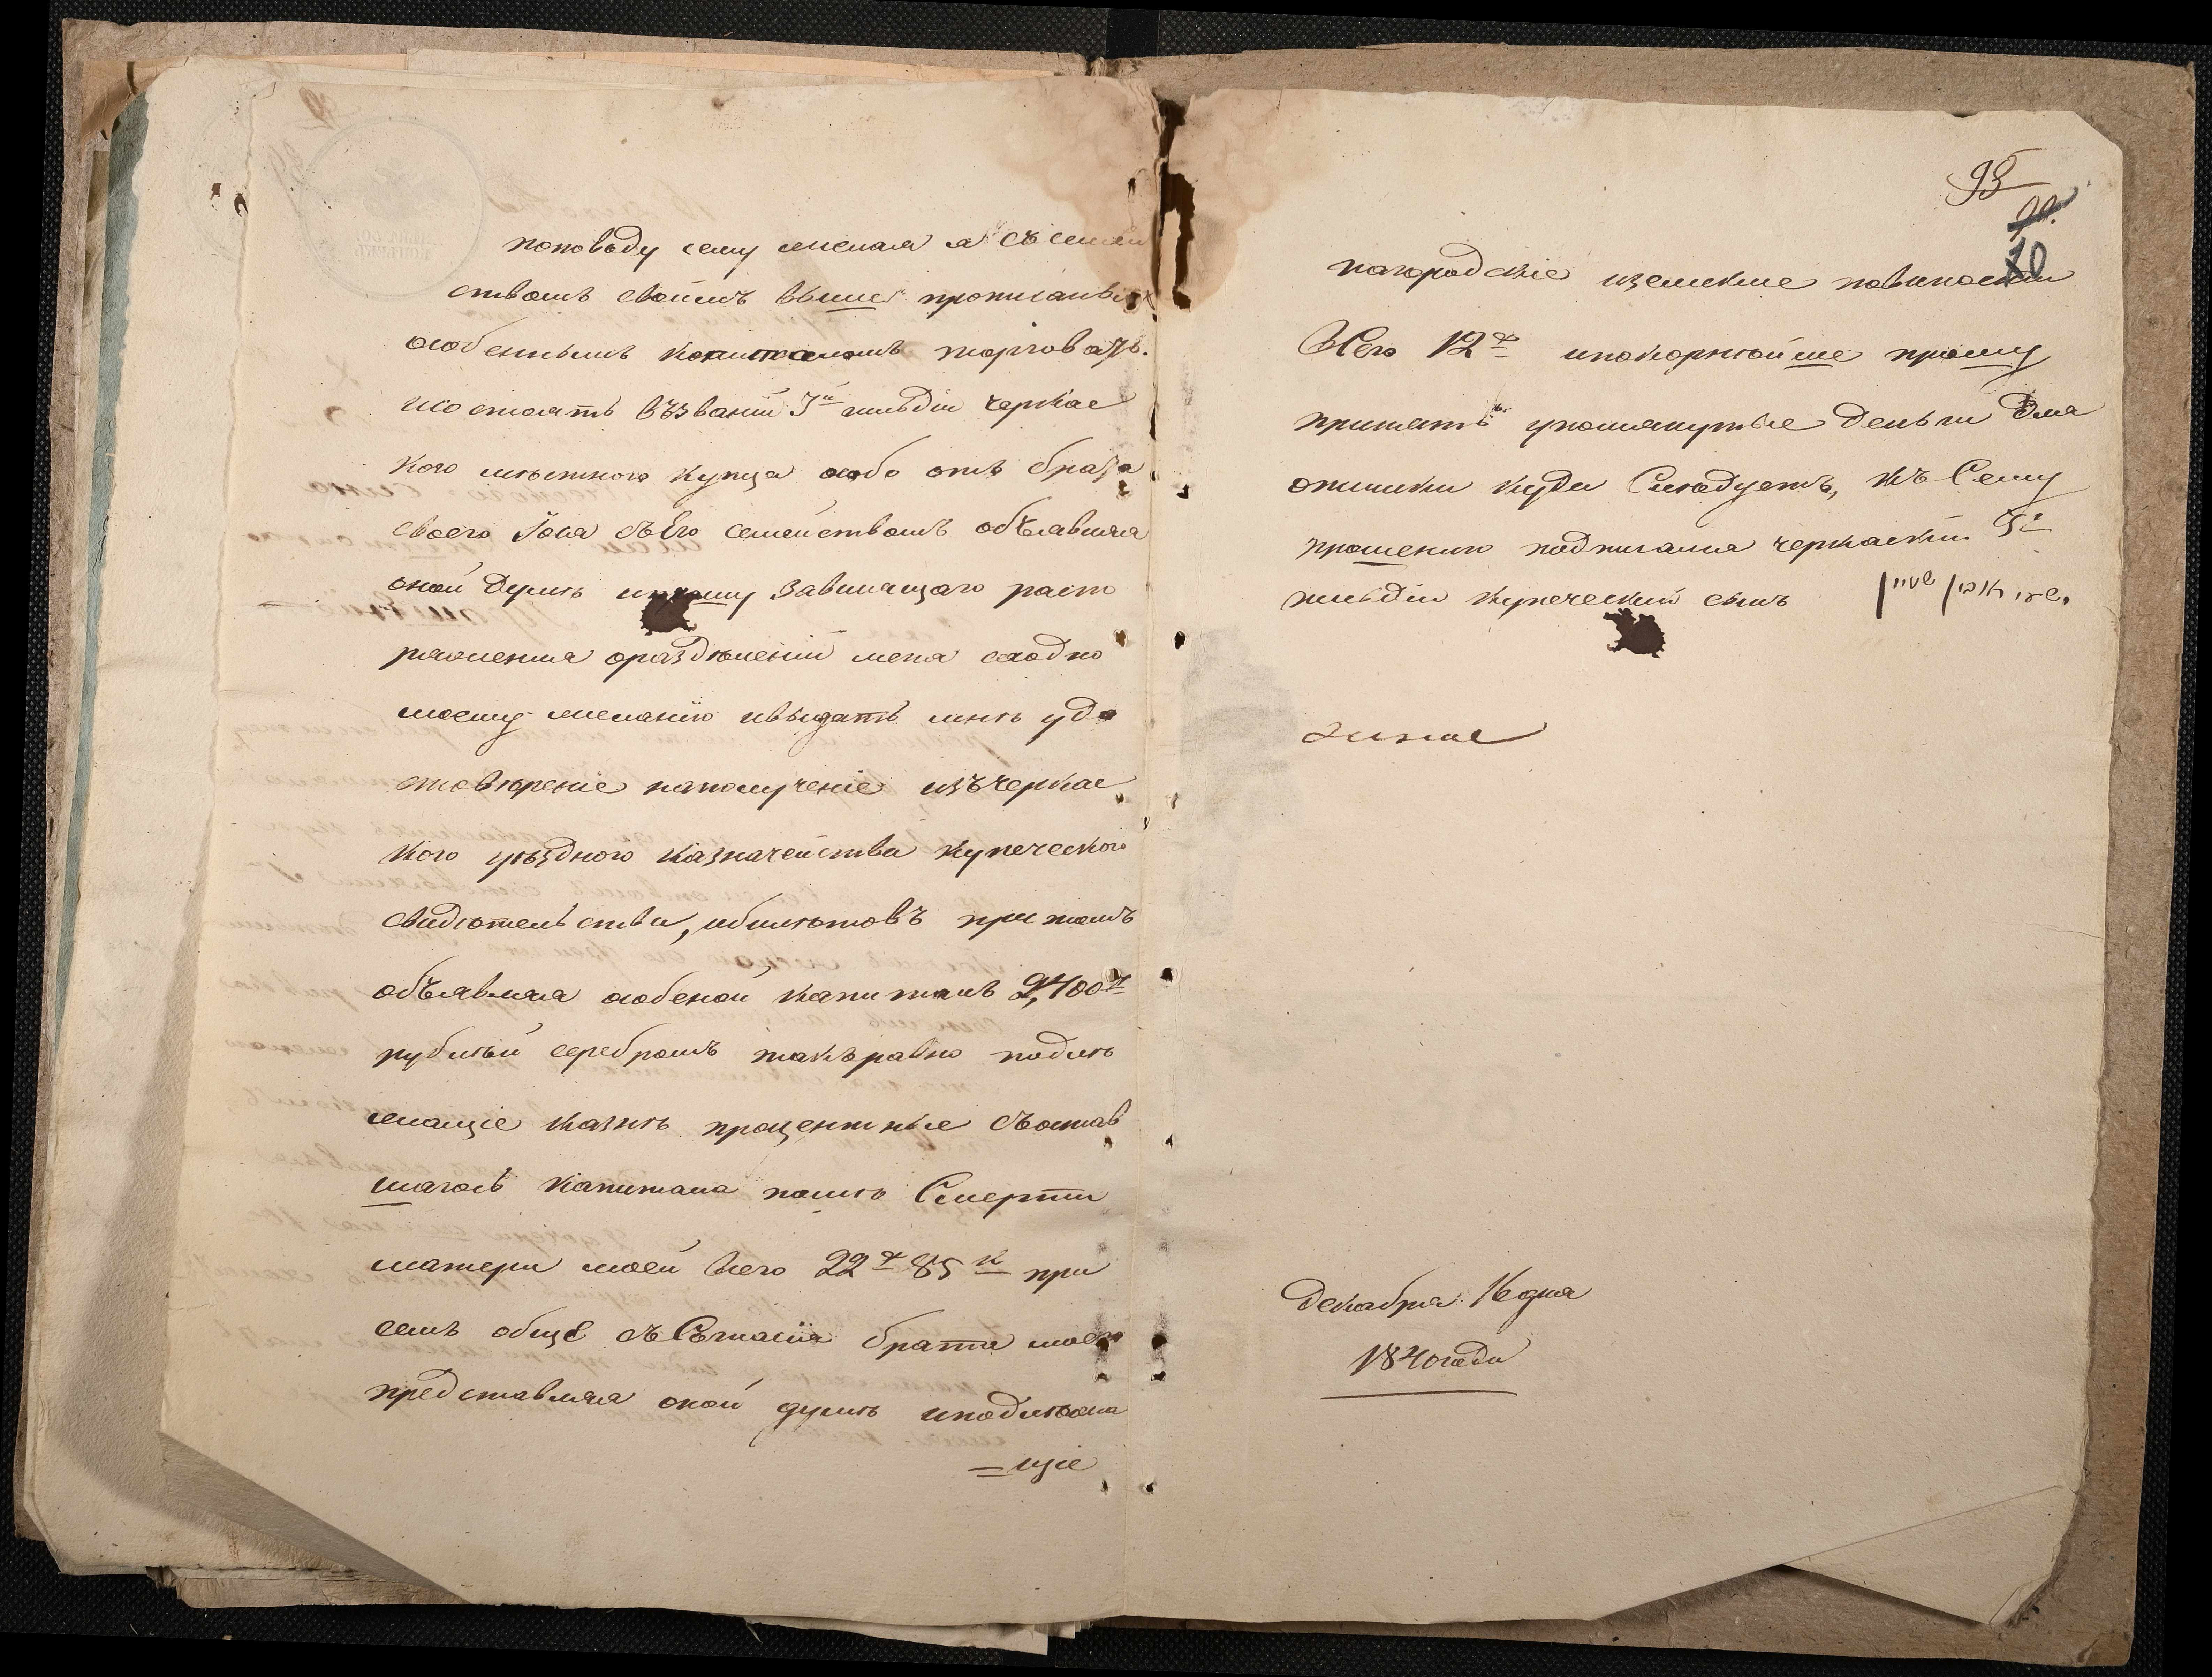 поповоду сему желая я съ семей
ствомъ своимъ выше прописанымъ
особеннымъ капиталомъ торговать.
и состоять въ званіи 3й гильдіи черкас
кого мѣстного купца особо отъ брата
своего Іоса съ Его семействомъ объявляя
оной Думѣ и прошу зависящаго распо
ряженія о раздѣленіи меня сходно
моему желанію и выдать мнѣ удо
стовѣреніе на полученіе изъ черкас
кого уѣздного казначейства купеческого
свидѣтельства, и билѣтовъ при томъ
объявляя особеной капиталъ 2,400 р
рублѣй серебромъ такъ равно подлѣ
жащіе казнѣ процентные съ остав
шагось капитала послѣ Смерти
матери моей всего 22 р 85 к при
семъ обще съ Согласія брата моего
представляя оной думѣ и подлѣжа
=щіе
95
90.
10
на городскіе и земские повинности
всего 12 р и покорнѣйше прошу
принять упомянутые деньги для
отсылки куда Слѣдуетъ, къ Сему
прошению подписался черкаский 3й
гильдіи купеческий сынъ
декабря 16 дня
1840 года